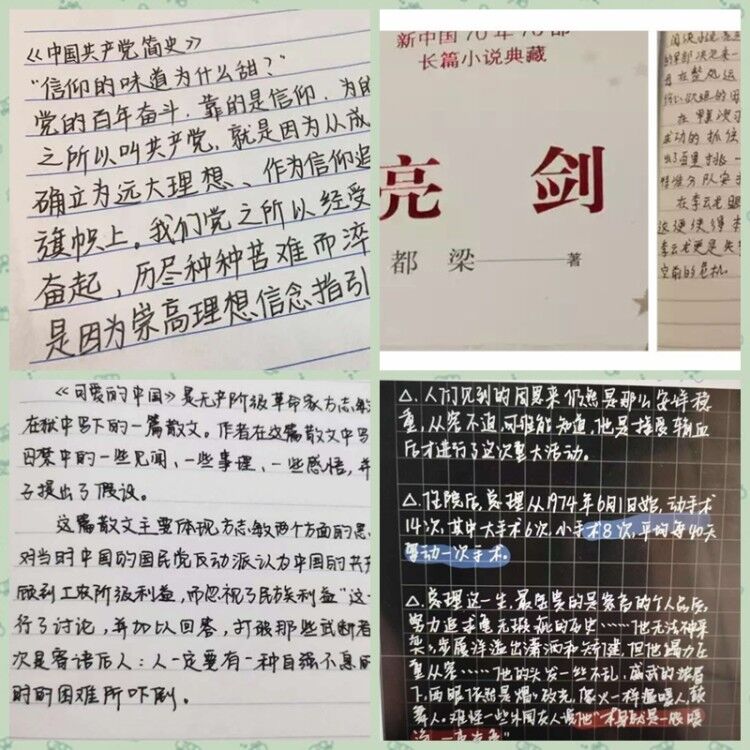 《中国共产党简史》
"信仰的味道为什么甜?"
党的百年奋斗,靠的是信仰,为的
之所以叫共产党,就是因为从成
确立为远大理想、作为信仰追
旗帜上。我们党之所以经受
奋起,历尽种种苦难而淬
是因为崇高理想信念指引
新中国70年70部
长篇小说典藏
亮剑
都梁——著
在李云龙
李云龙更是失
空前的危机
《可爱的中国》是无产阶级革命家方志敏
在狱中写下的一篇散文。作者在这篇散文中写
囚禁中的一些见闻、一些事理、一些感悟,并
子提出了假设。
这篇散文主要体现方志敏两个方面的思
对当时中国的国民党反动派认为中国的共
顾到工农阶级利益,而忽视了民族利益"这一
行了讨论,并加以回答,打破那些武断者
次是寄语后人:人一定要有一种自强不息的
时的困难所吓倒。
△.人们见到的周恩来仍然是那么安详稳
重,从容不迫,可谁能知道,他是接受输血
后才进行了这次重大活动。
△.住院后,总理从1974年6月1日始,动手术
14次,其中大手术6次,小手术8次,平均每40天
要动一次手术。
△.总理这一生,最宝贵的是崇高的个人品质,
努力追求毫无瑕疵的历史……他无法神采
奕奕,步履洋溢出潇洒和矫健,但他竭力庄
重从容……他的头发一丝不乱,威武的浓眉
下,两眼依然是熠熠放光,像火一样温暖人,鼓
舞人。难怪一些外国友人说他"本身就是一股暖